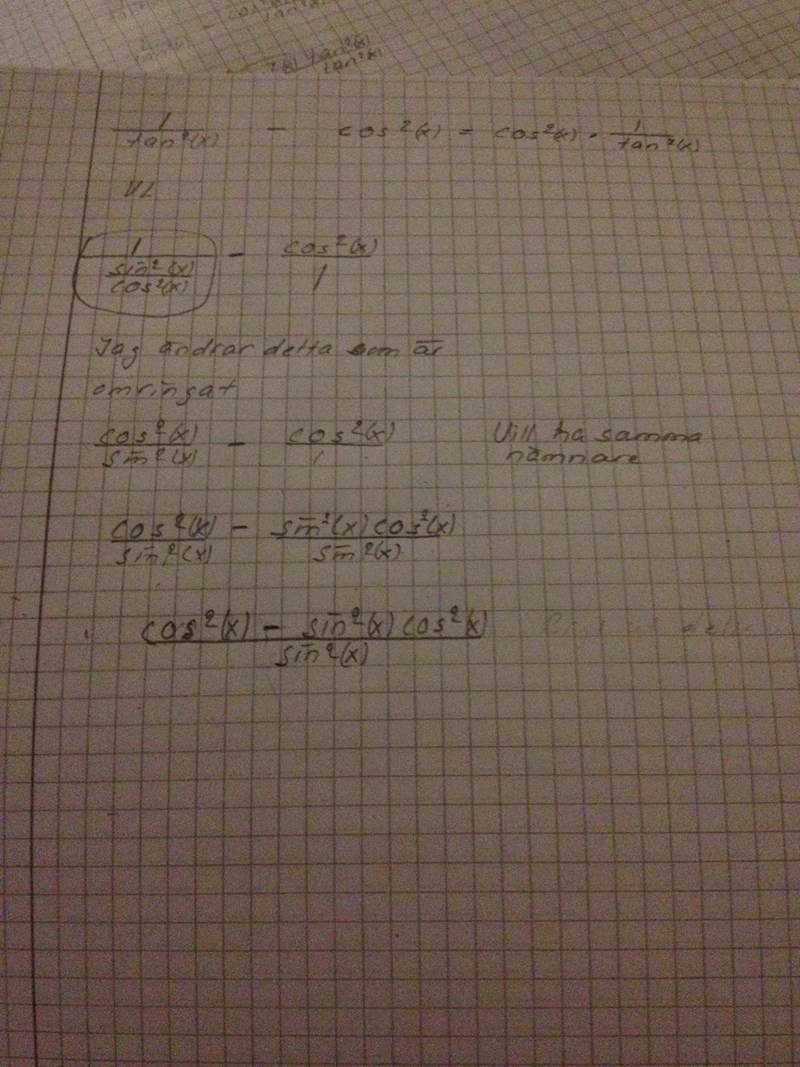 1/tan²(x) - cos²(x) = cos²(x) · 1/tan²(x)
VL
1/(sin²(x)/cos²(x)) - cos²(x)/1
Jag ändrar detta som är
omringat
cos²(x)/sin²(x) - cos²(x)/1 Vill ha samma
nämnare
cos²(x)/sin²(x) - sin²(x) cos²(x)/sin²(x)
cos²(x) - sin²(x) cos²(x)/sin²(x)